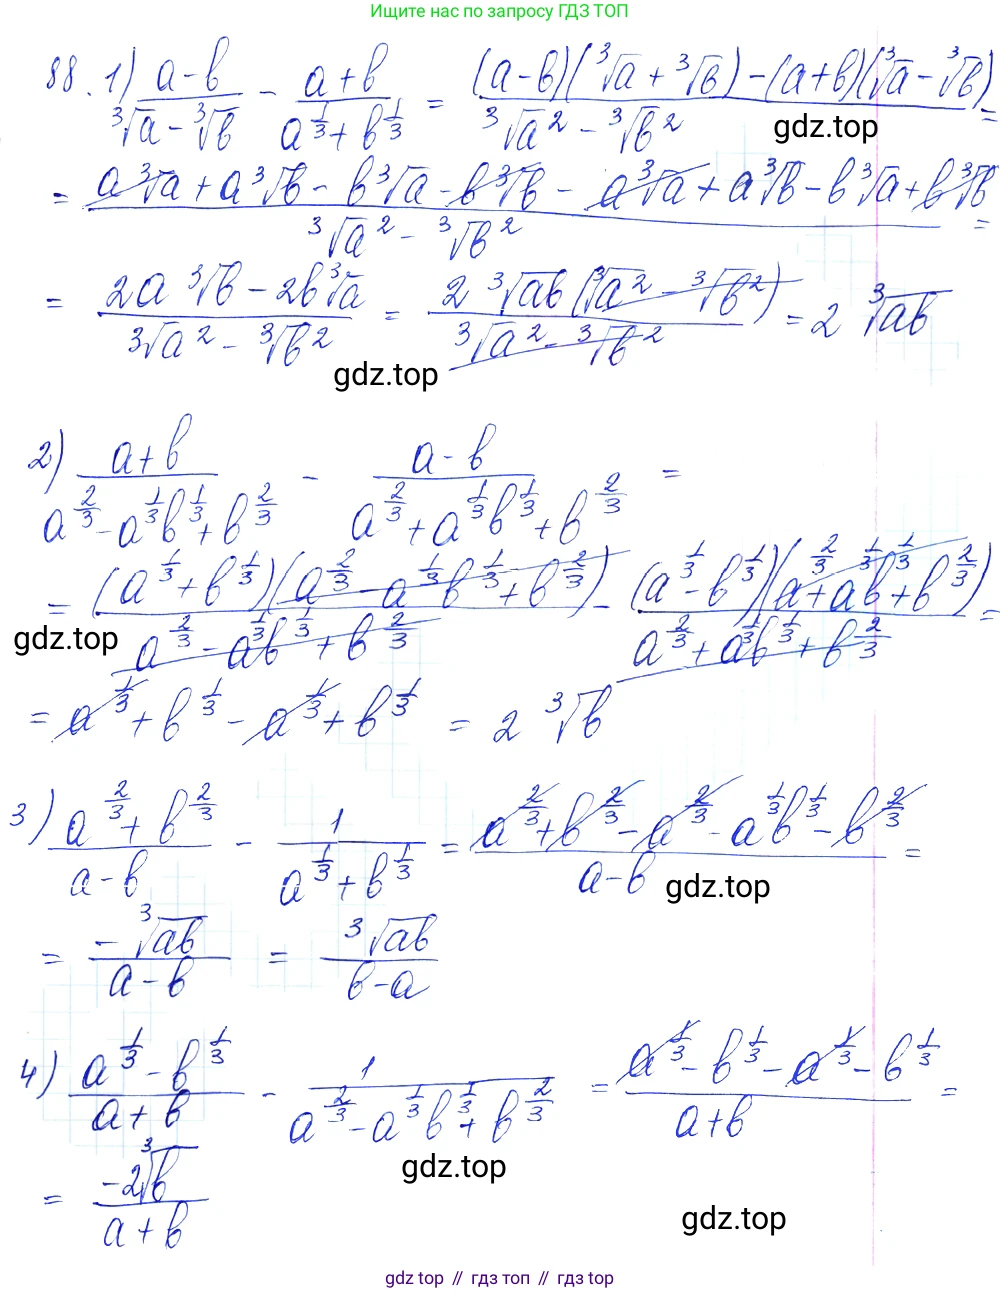 Ищите нас по запросу ГДЗ ТОП
88. 1) (a-b)/(∛a-∛b) - (a+b)/(a^{1/3}+b^{1/3}) = ((a-b)(∛a+∛b)-(a+b)(∛a-∛b))/(∛a²-∛b²) =
gdz.top
= (a∛a+a∛b-b∛a-b∛b-a∛a+a∛b-b∛a+b∛b)/(∛a²-∛b²) =
= (2a∛b-2b∛a)/(∛a²-∛b²) = (2∛ab(∛a²-∛b²))/(∛a²-∛b²) = 2∛ab
gdz.top
2) (a+b)/(a^{2/3}-a^{1/3}b^{1/3}+b^{2/3}) - (a-b)/(a^{2/3}+a^{1/3}b^{1/3}+b^{2/3}) =
= ((a^{1/3}+b^{1/3})(a^{2/3}-a^{1/3}b^{1/3}+b^{2/3}))/(a^{2/3}-a^{1/3}b^{1/3}+b^{2/3}) - ((a^{1/3}-b^{1/3})(a^{2/3}+a^{1/3}b^{1/3}+b^{2/3}))/(a^{2/3}+a^{1/3}b^{1/3}+b^{2/3}) =
gdz.top
= a^{1/3}+b^{1/3}-a^{1/3}+b^{1/3} = 2∛b
3) (a^{2/3}+b^{2/3})/(a-b) - 1/(a^{1/3}+b^{1/3}) = (a^{2/3}+b^{2/3}-a^{2/3}-a^{1/3}b^{1/3}-b^{2/3})/(a-b) =
gdz.top
= (-∛ab)/(a-b) = ∛ab/(b-a)
4) (a^{1/3}-b^{1/3})/(a+b) - 1/(a^{2/3}-a^{1/3}b^{1/3}+b^{2/3}) = (a^{1/3}-b^{1/3}-a^{1/3}-b^{1/3})/(a+b) =
gdz.top
= (-2∛b)/(a+b)
gdz.top
gdz top // гдз топ // гдз top